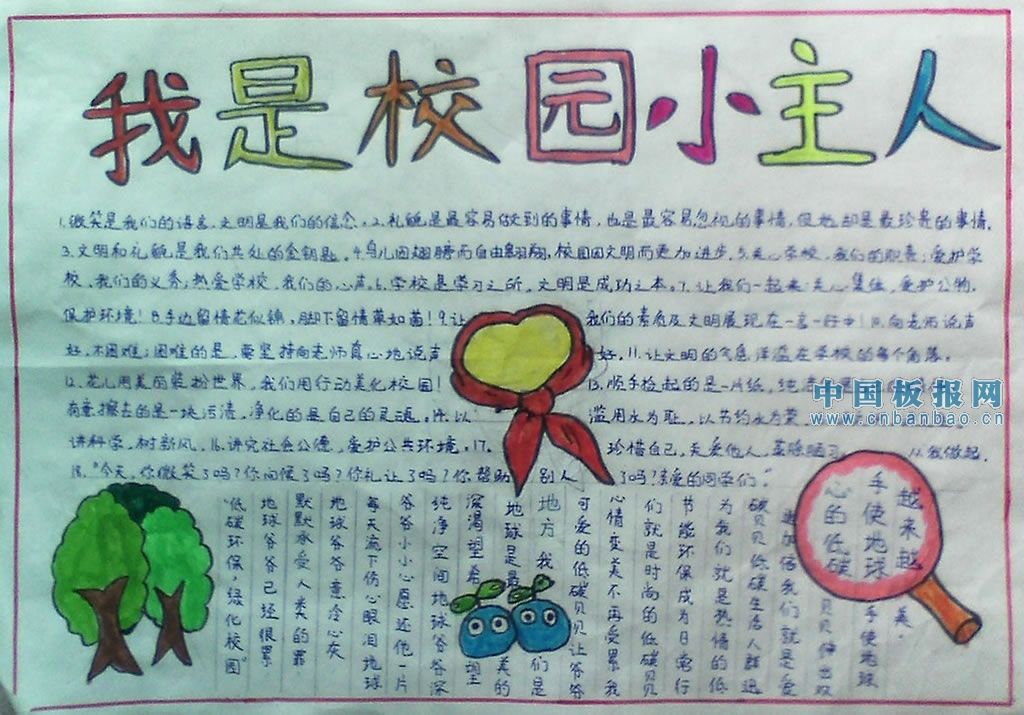 我是校园小主人
1.微笑是我们的语言,文明是我们的信念。2.礼貌是最容易做到的事情,也是最容易忽视的事情,但她却是最珍贵的事情.
3.文明和礼貌是我们共处的金钥匙。4.鸟儿因翅膀而自由翱翔,校园因文明而更加进步.5.关心学校,我们的职责;爱护学
校,我们的义务;热爱学校,我们的心声.6.学校是学习之所,文明是成功之本。7.让我们一起来:关心集体,爱护公物,
保护环境!8.手边留情花似锦,脚下留情草如茵!9.让 我们的素质及文明展现在一言一行中!10.向老师说声
好,不困难;困难的是,要坚持向老师真心地说声 好。11.让文明的气息洋溢在学校的每个角落。
12.花儿用美丽装扮世界,我们用行动美化校园! 13.顺手捡起的是一片纸,纯洁
有意擦去的是一块污渍,净化的是自己的灵魂。14.以 滥用水为耻,以节约水为荣
讲科学,树新风。16.讲究社会公德,爱护公共环境。17. 珍惜自己,关爱他人, 从我做起.
18."今天,你微笑了吗?你问候了吗?你礼让了吗?你帮助 别人 了吗?亲爱的同学们."
中国板报网
www.cnbanbao.cn
越来越
手使地球
心的低碳
美。
手使地球
贝贝伸出双
更加信我们就是爱
碳贝贝低碳生活人群迅
为我们就是热情的低
节能环保成为日常行
们就是时尚的低碳贝贝
心情变美不再受累我
可爱的低碳贝贝让爷爷
地方我 们是
地球是最 美的
深渴望希 望
纯净空间地球爷爷深
爷爷小小心愿还他一片
每天流下伤心眼泪地球
地球爷爷意冷心灰
默默承受人类的罪
地球爷爷已经很累
"低碳环保,绿化校园"